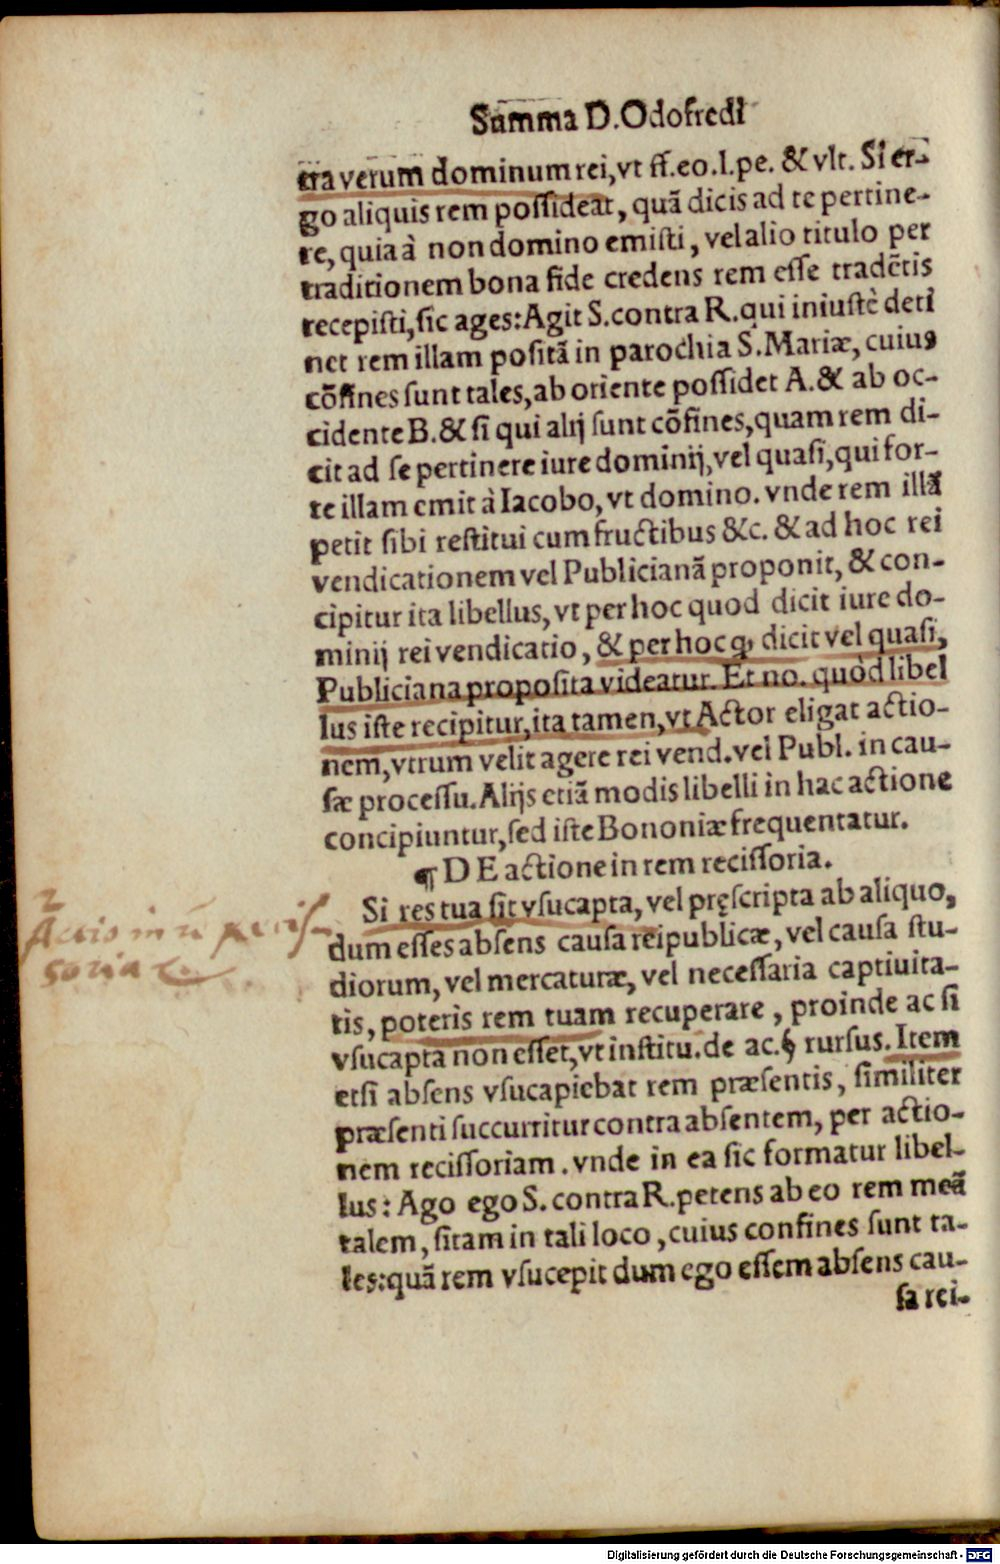 Summa D. Odofredi
tra verum dominum rei, vt ff. eo. l. pe. & vlt. Si er-
go aliquis rem poſſideat, quā dicis ad te pertine-
re, quia à non domino emiſti, vel alio titulo per
traditionem bona fide credens rem eſſe tradētis
recepiſti, ſic ages: Agit S. contra R. qui iniuſtè deti
net rem illam poſitā in parochia S. Mariæ, cuius
cōfines ſunt tales, ab oriente poſſidet A. & ab oc-
cidente B. & ſi qui alij ſunt cōfines, quam rem di-
cit ad ſe pertinere iure dominij, vel quaſi, qui for-
te illam emit à Iacobo, vt domino. vnde rem illā
petit ſibi reſtitui cum fructibus &c. & ad hoc rei
vendicationem vel Publicianā proponit, & con-
cipitur ita libellus, vt per hoc quod dicit iure do-
minij rei vendicatio, & per hoc ꝙ dicit vel quaſi,
Publiciana propoſita videatur. Et no. quòd libel
lus iſte recipitur, ita tamen, vt Actor eligat actio-
nem, vtrum velit agere rei vend. vel Publ. in cau-
ſæ proceſſu. Alijs etiā modis libelli in hac actione
concipiuntur, ſed iſte Bononiæ frequentatur.
¶ D E actione in rem reciſſoria.
Si res tua ſit vſucapta, vel pręſcripta ab aliquo,
dum eſſes abſens cauſa reipublicæ, vel cauſa ſtu-
diorum, vel mercaturæ, vel neceſſaria captiuita-
tis, poteris rem tuam recuperare, proinde ac ſi
vſucapta non eſſet, vt inſtitu. de ac. § rurſus. Item
etſi abſens vſucapiebat rem præſentis, ſimiliter
præſenti ſuccurritur contra abſentem, per actio-
nem reciſſoriam. vnde in ea ſic formatur libel-
lus: Ago ego S. contra R. petens ab eo rem meā
talem, ſitam in tali loco, cuius confines ſunt ta-
les: quā rem vſucepit dum ego eſſem abſens cau-
ſa rei-
2
Actio in
soria
Digitalisierung gefördert durch die Deutsche Forschungsgemeinschaft - DFG